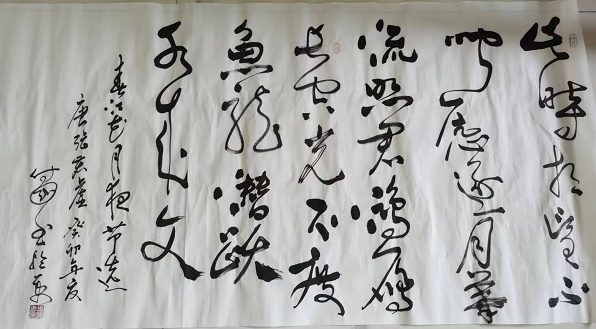 此時相望不
聞愿逐月華
流照君鴻雁
長飛光不度
魚龍潛躍
水成文
春江花月夜节选
唐張若虛癸卯年夏
書於